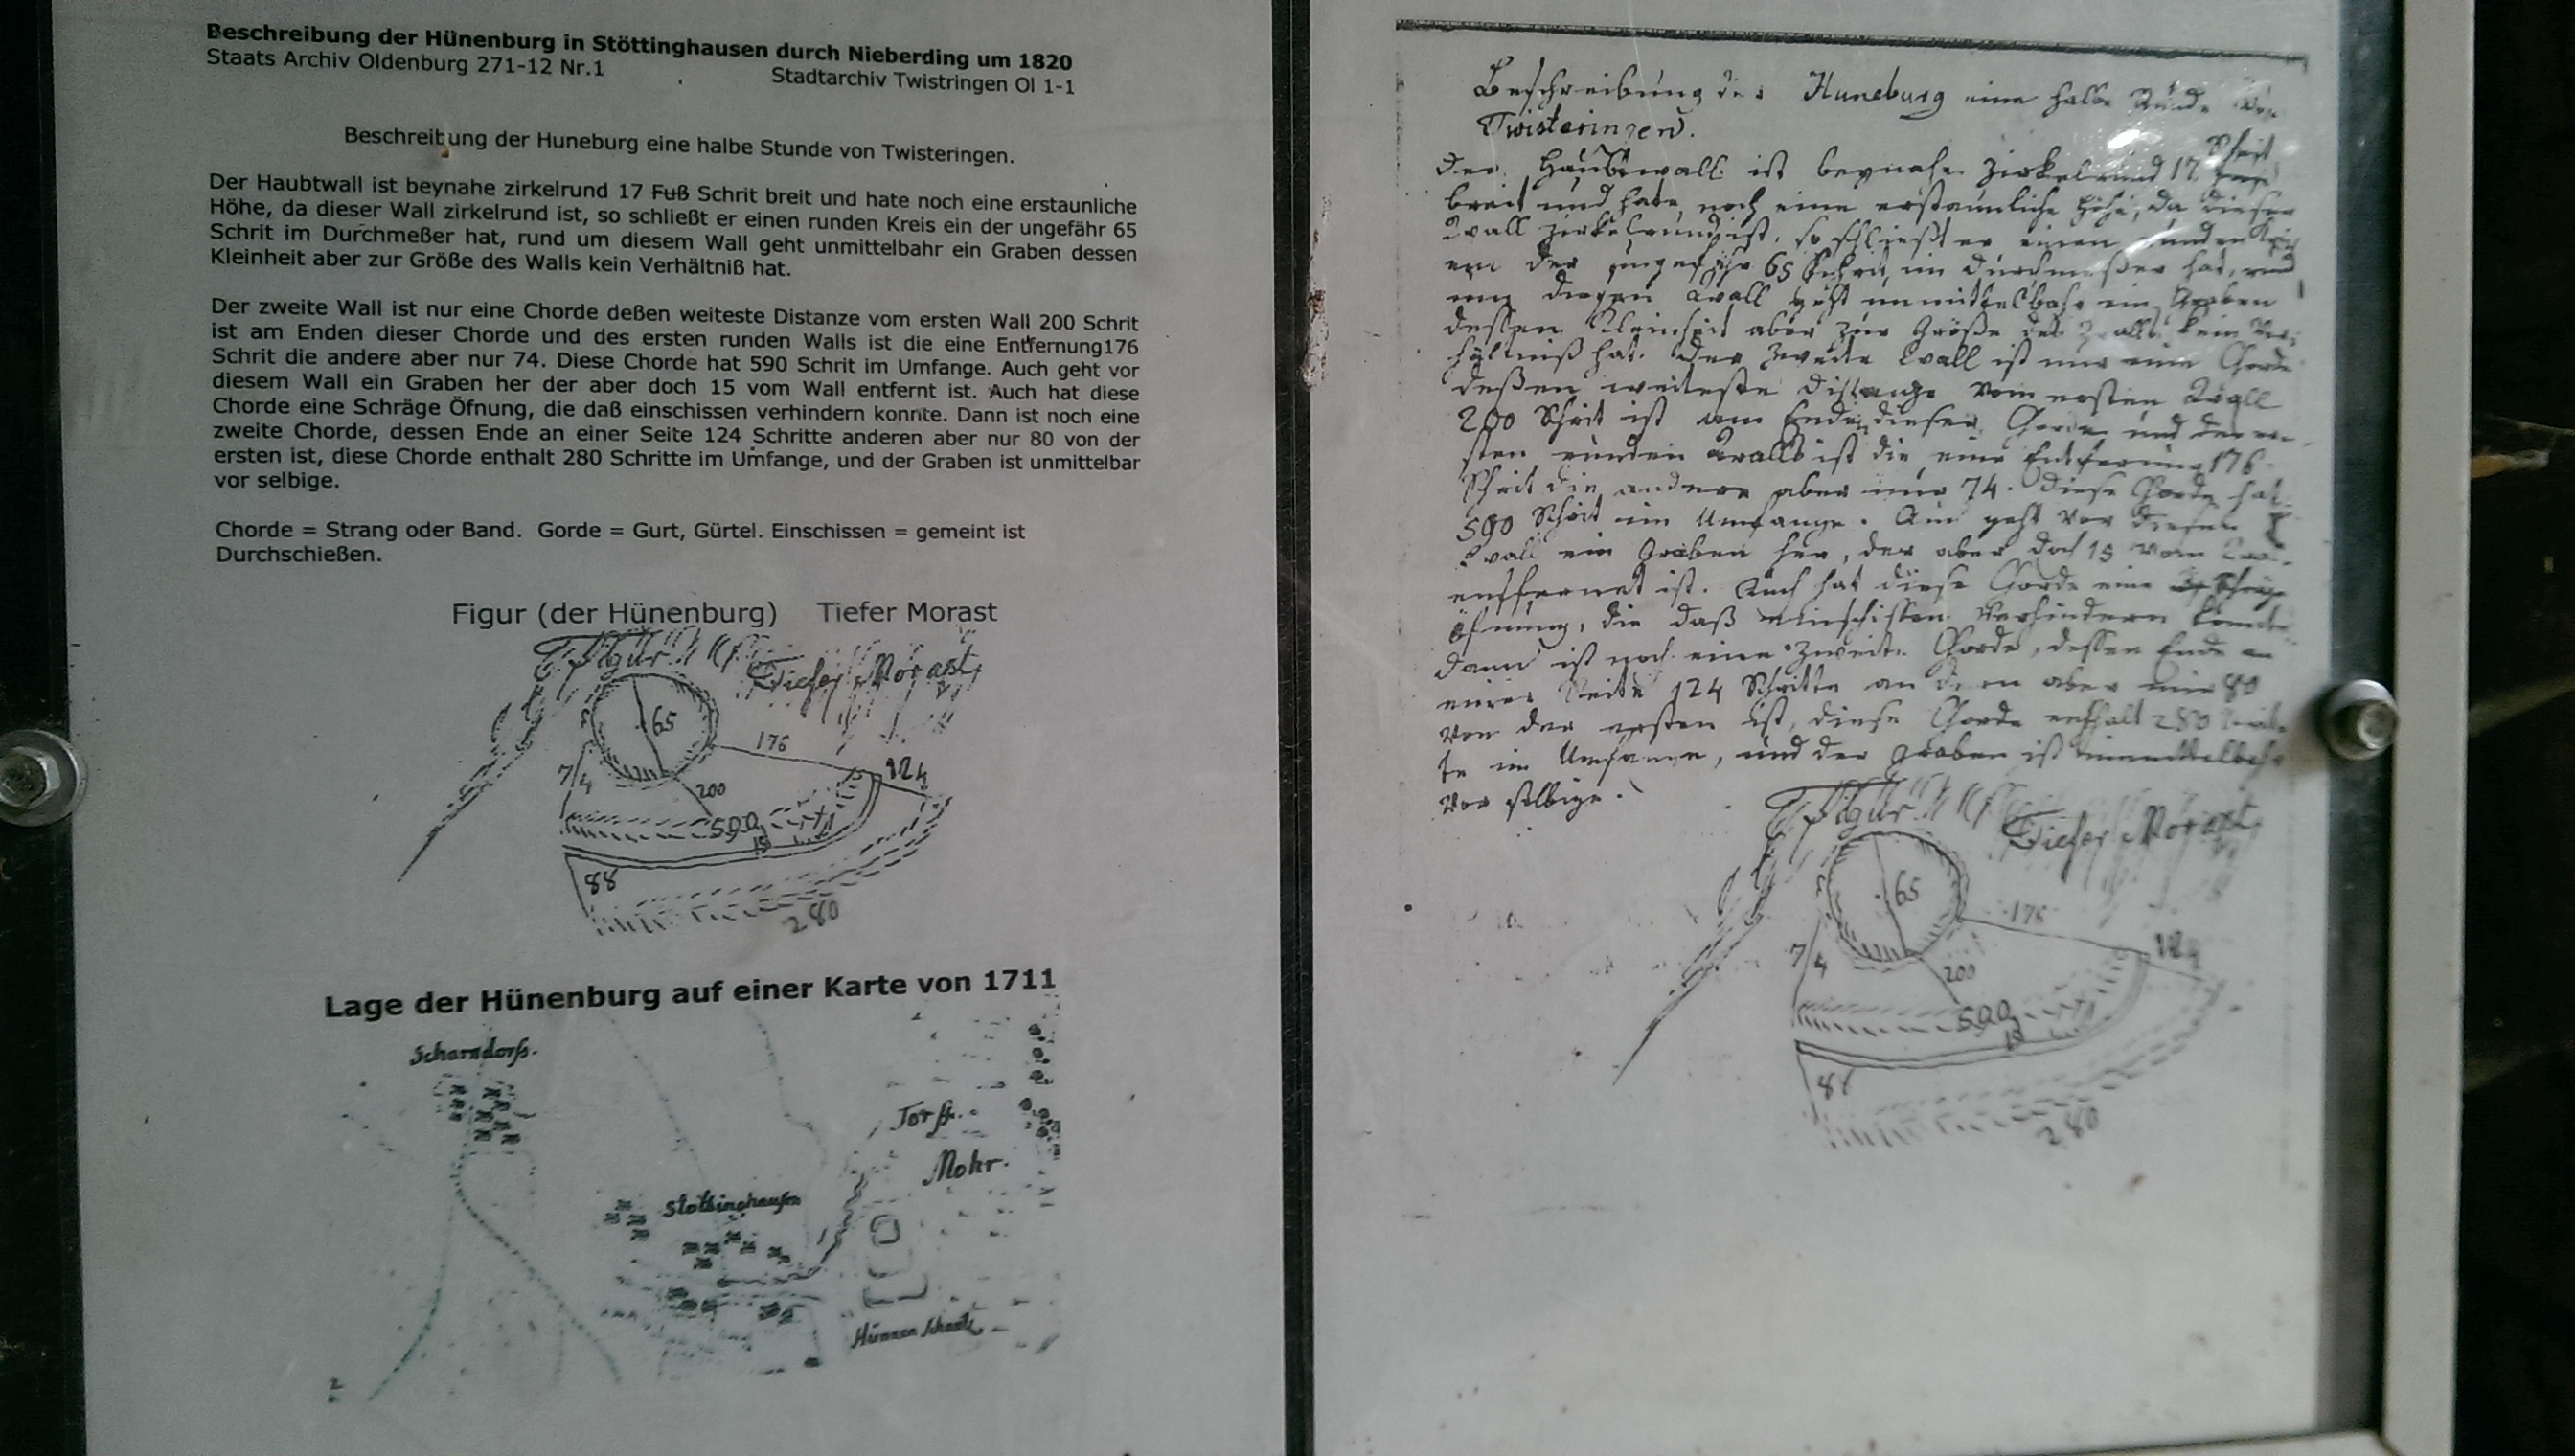 Beschreibung der Hünenburg in Stöttinghausen durch Nieberding um 1820
Staats Archiv Oldenburg 271-12 Nr.1 Stadtarchiv Twistringen Ol 1-1
Beschreibung der Huneburg eine halbe Stunde von Twisteringen.
Der Haubtwall ist beynahe zirkelrund 17 Fuß Schrit breit und hate noch eine erstaunliche
Höhe, da dieser Wall zirkelrund ist, so schließt er einen runden Kreis ein der ungefähr 65
Schrit im Durchmeßer hat, rund um diesem Wall geht unmittelbahr ein Graben dessen
Kleinheit aber zur Größe des Walls kein Verhältniß hat.
Der zweite Wall ist nur eine Chorde deßen weiteste Distanze vom ersten Wall 200 Schrit
ist am Enden dieser Chorde und des ersten runden Walls ist die eine Entfernung176
Schrit die andere aber nur 74. Diese Chorde hat 590 Schrit im Umfange. Auch geht vor
diesem Wall ein Graben her der aber doch 15 vom Wall entfernt ist. Auch hat diese
Chorde eine Schräge Öfnung, die daß einschissen verhindern konnte. Dann ist noch eine
zweite Chorde, dessen Ende an einer Seite 124 Schritte anderen aber nur 80 von der
ersten ist, diese Chorde enthalt 280 Schritte im Umfange, und der Graben ist unmittelbar
vor selbige.
Chorde = Strang oder Band. Gorde = Gurt, Gürtel. Einschissen = gemeint ist
Durchschießen.
Figur (der Hünenburg) Tiefer Morast
Figur
Tiefer Morast
65
176
74
124
200
590
15
88
280
Lage der Hünenburg auf einer Karte von 1711
Scharndorff.
Torff.
Mohr.
Stottinghausen
Hünnen Schantz
Beschreibung der Huneburg eine halbe Stunde von
Twisteringen.
Der Haubtwall ist beynahe zirkelrund 17 Schrit
breit und hate noch eine erstaunliche Höhe, da dieser
Wall zirkelrund ist, so schließt er einen runden Kreis
ein der ungefähr 65 Schrit im Durchmeßer hat, rund
um diesen Wall geht unmittelbahr ein Graben
dessen Kleinheit aber zur Größe des Walls kein Ver-
hältniß hat. Der zweite Wall ist nur eine Gorde
deßen weiteste Distanze vom ersten Wall
200 Schrit ist am Enden dieser Gorde und des er-
sten runden Walls ist die eine Entfernung 176
Schrit die andere aber nur 74. Diese Gorde hat
590 Schrit im Umfange. Auch geht vor diesem
Wall ein Graben her, der aber doch 15 vom Wall
entfernet ist. Auch hat diese Gorde eine Schräge
Öfnung, die daß einschissen verhindern konnte
dann ist noch eine zweite Gorde, dessen Ende an
einer Seite 124 Schritte anderen aber nur 80
von der ersten ist, diese Gorde enthalt 280 Schrit-
te im Umfange, und der Graben ist unmittelbahr
vor selbige.
Figur
Tiefer Morast
65
176
74
124
200
590
15
280